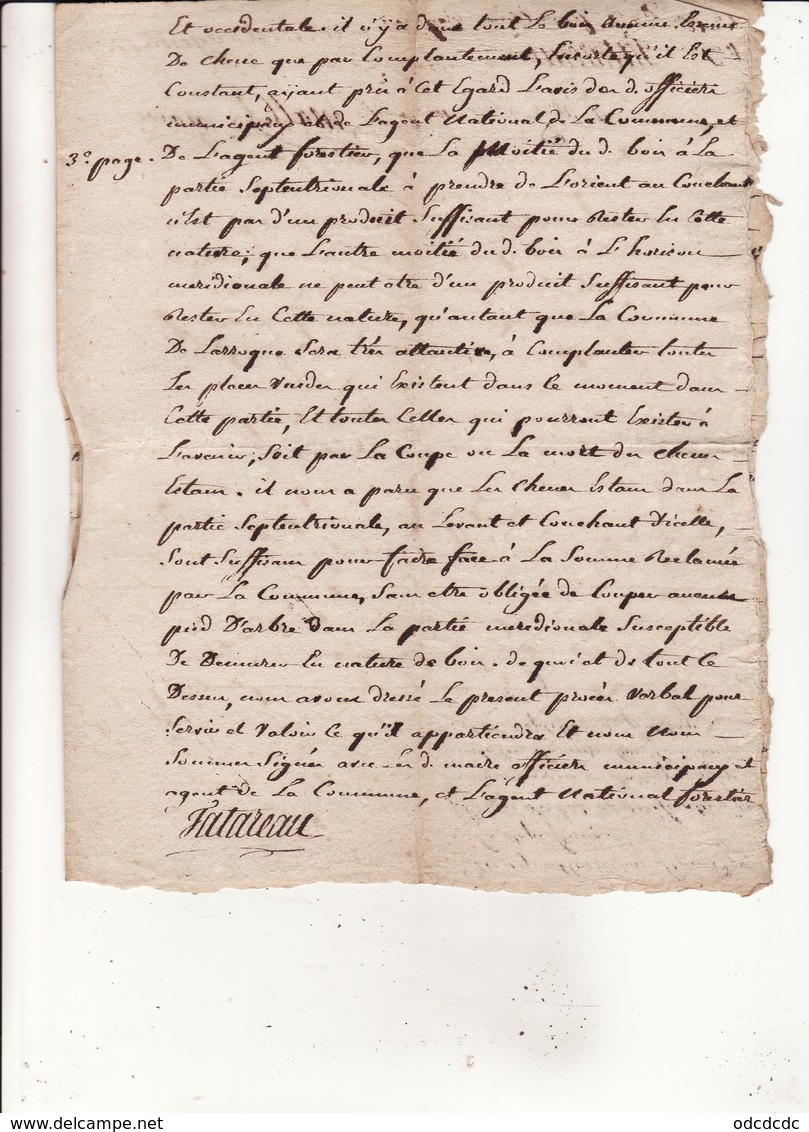 Et occidentale. il n'y a dans tout Le bois aucune
De chene que par Complantement, Ensorte qu'il Est
Constant, ayant pris à Cet Egard L'avis des d. officiers
municipaux et de L'agent National de La Commune, et
3e. page. De L'agent forestier, que La Moitié du d. bois à La
partie Septentrionale à prendre de L'orient au Couchant
n'Est pas d'un produit Suffisant pour Rester En Cette
nature; que L'autre moitié du d. bois à L'horison
meridionale ne peut etre d'un produit Suffisant pour
Rester En Cette nature, qu'autant que La Commune
De Larroque Sera très attantive, à Complanter toutes
Les places Vuides qui Existent dans le moment dans
Cette partie, Et toutes Celles qui pourront Exister à
L'avenir, Soit par La Coupe ou La mort des chenes
Estans. il nous a paru que Les chenes Estans dans La
partie Septentrionale, au Levant et Couchant d'icelle,
Sont Suffisans pour faire face à La Somme Reclamée
par La Commune, Sans etre obligée de Couper aucun
pied D'arbre dans La partie meridionale Susceptible
De Demeurer En nature de bois. de quoi et de tout Ce
Dessus, nous avons dressé Le present procès verbal pour
Servir et Valoir Ce qu'il appartiendra Et nous Nous
Sommes Signés avec Les d. maire officiers municipaux et
agent de La Commune, et L'agent National forestier
Fatareau
odcdcdc